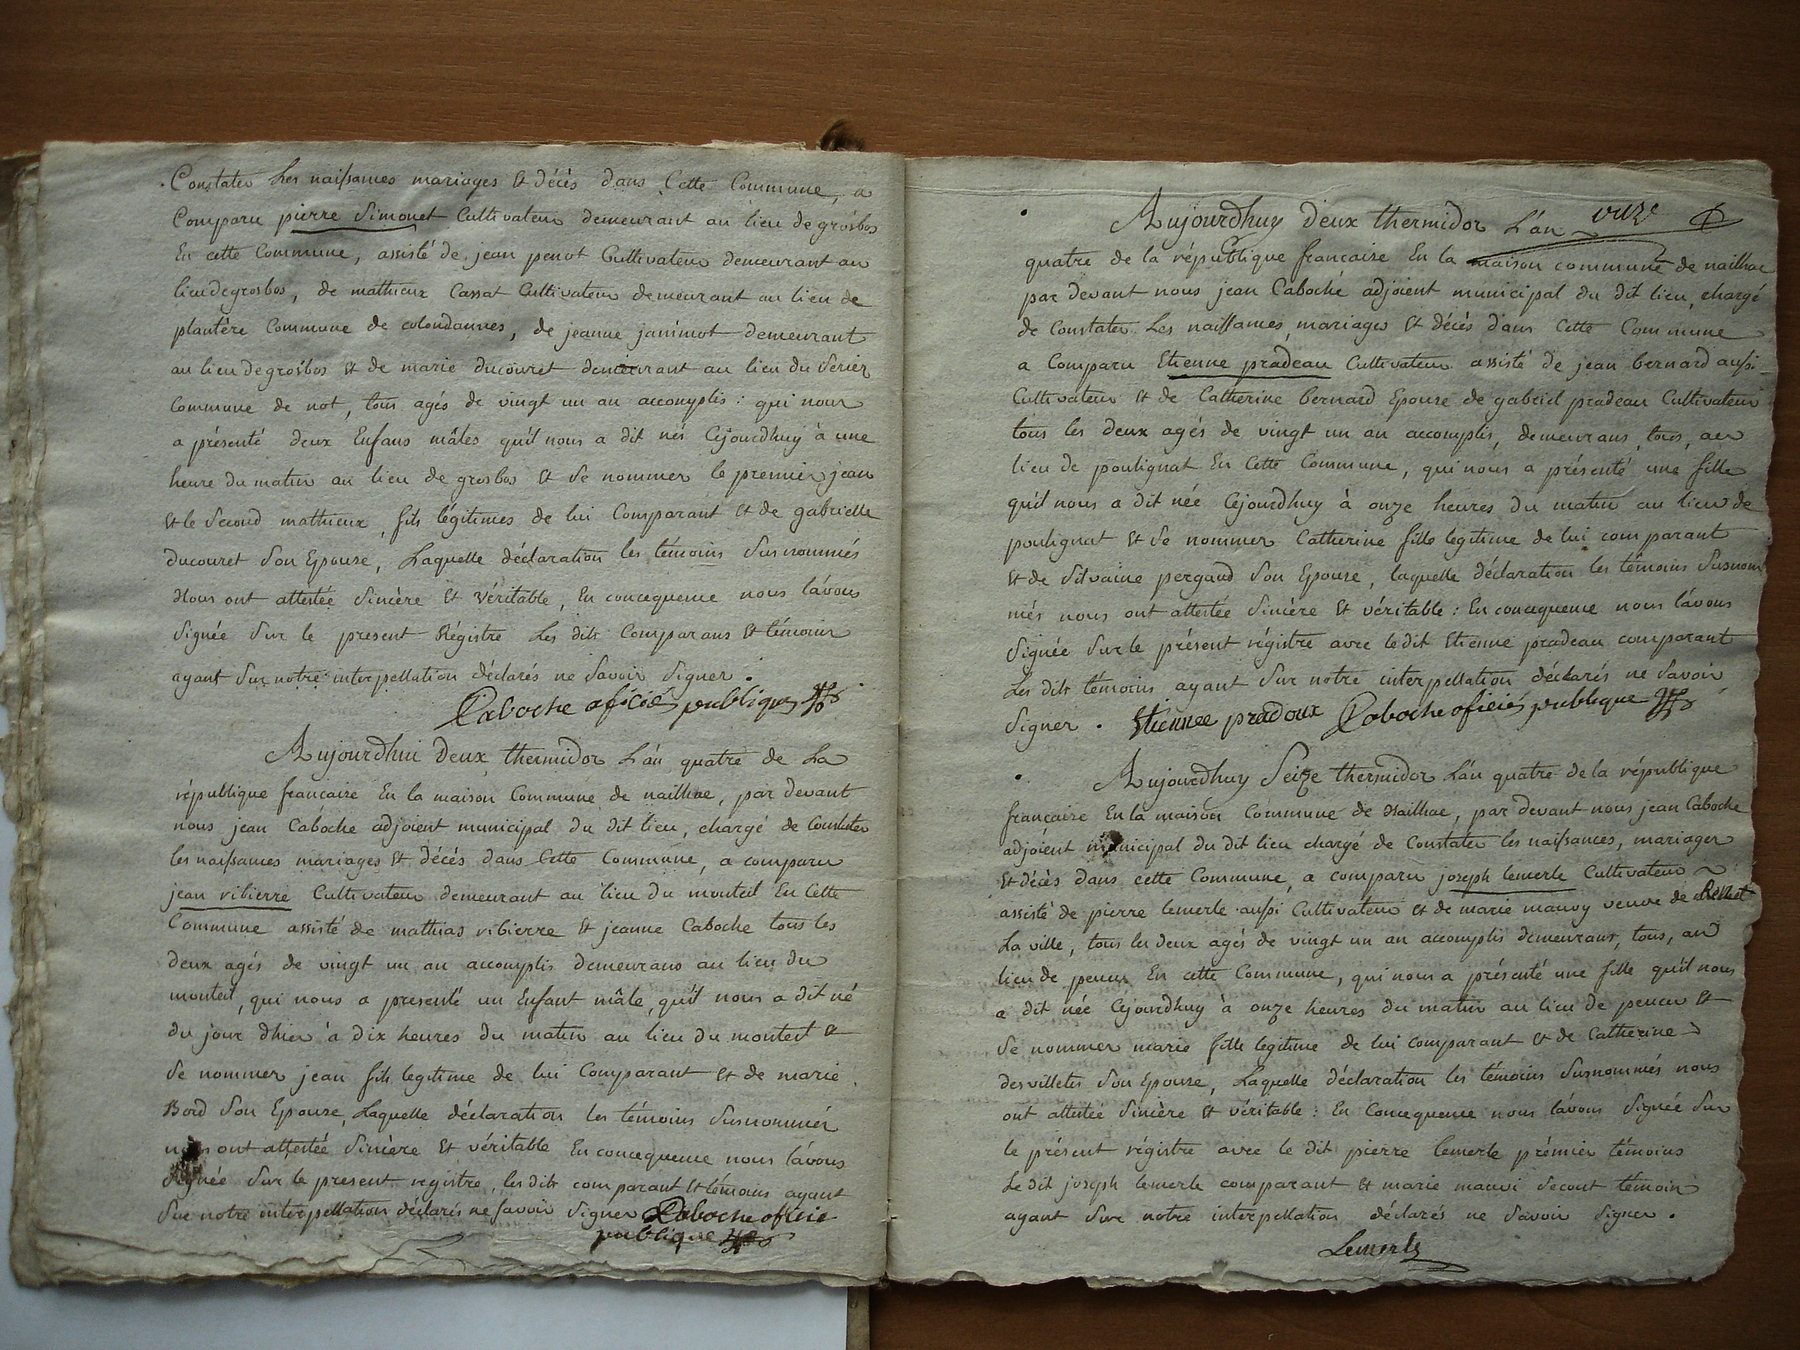 Constater Les naissances mariages et décès dans Cette Commune, a
Comparu pierre Simonet Cultivateur demeurant au lieu de grosbos
En cette Commune, assisté de jean penot Cultivateur demeurant au
lieu de grosbos, de mathieux Cassat Cultivateur demeurant au lieu de
plantère Commune de colondannes, de jeanne janimot demeurant
au lieu de grosbos et de marie ducouret demeurant au lieu du Serier
Commune de not, tous agés de vingt un an accomplis : qui nous
a présenté deux Enfans mâles qu'il nous a dit nés Cejourdhuy à une
heure du matin au lieu de grosbos et Se nommer le premier jean
et le Second mathieux, fils légitimes de lui Comparant et de gabrielle
ducouret Son Epouse, Laquelle déclaration les témoins Susnommés
Nous ont attestée Sincère et véritable, En concequence nous l'avons
Signée Sur le present Régistre Les dits Comparans et témoins
ayant Sur notre interpellation déclarés ne Savoir Signer.
Caboche oficié publique
Aujourdhui Deux thermidor L'an quatre de La
république francaise En la maison Commune de naillac, par devant
nous jean Caboche adjoient municipal du dit lieu, chargé de Constater
les naissances mariages et décès dans Cette Commune, a comparu
jean ribierre Cultivateur demeurant au lieu du monteil En Cette
Commune assisté de mathias ribierre et jeanne Caboche tous les
deux agés de vingt un an accomplis demeurans au lieu du
monteil, qui nous a presenté un Enfant mâle, qu'il nous a dit né
du jour dhier à dix heures du matin au lieu du monteil et
Se nommer jean fils legitime de lui Comparant et de marie
Bord Son Epouse, Laquelle déclaration les témoins Susnommés
nous ont attestée Sincère et véritable En concequence nous l'avons
Signée Sur le present registre, les dits comparant et témoins ayant
Sur notre interpellation déclarés ne Savoir Signer Caboche oficié
publique
onze
Aujourdhuy deux thermidor L'an
quatre de la république francaise En la maison commune de naillac
par devant nous jean Caboche adjoient municipal du dit lieu, chargé
de Constater Les naissances, mariages et décès dans Cette Commune
a Comparu Etienne pradeau Cultivateur assisté de jean bernard aussi
Cultivateur et de Catherine bernard Epouse de gabriel pradeau Cultivateur
tous les deux agés de vingt un an accomplis, demeurans, tous, au
lieu de poulignat En Cette Commune, qui nous a présenté une fille
qu'il nous a dit née Cejourdhuy à onze heures du matin au lieu de
poulignat et Se nommer Catherine fille legitime de lui comparant
et de Silvaine pergaud Son Epouse, laquelle déclaration les témoins Susnom
més nous ont attestée Sincère et véritable : En concequence nous l'avons
Signée Sur le présent régistre avec ledit Etienne pradeau comparant
Les dits témoins ayant Sur notre interpellation déclarés ne Savoir
Signer. Etiennee pradoux Caboche oficié publique
Aujourdhuy Seize thermidor L'an quatre de la république
francaise En la maison Commune de Naillac, par devant nous jean Caboche
adjoient municipal du dit lieu chargé de Constater les naissances, mariages
et décès dans cette Commune, a comparu joseph lemerle Cultivateur
assisté de pierre lemerle aussi Cultivateur et de marie mauvy veuve de
La ville, tous les deux agés de vingt un an accomplis demeurans, tous, au
lieu de peneu En cette Commune, qui nous a présenté une fille qu'il nous
a dit née Cejourdhuy à onze heures du matin au lieu de peneu et
Se nommer marie fille legitime de lui comparant et de Catherine
desvilletes Son Epouse, Laquelle déclaration les témoins Susnommés nous
ont attestée Sincère et véritable : En Concequence nous l'avons Signée Sur
le présent régistre avec le dit pierre lemerle prémier témoins
Le dit joseph lemerle comparant et marie mauvi Secont témoin
ayant Sur notre interpellation déclarés ne Savoir Signer.
Lemerle